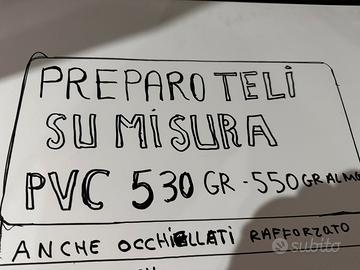 PREPARO TELI
SU MISURA
PVC 530 GR - 550 GR ALM
ANCHE OCCHIELLATI RAFFORZATO
subito